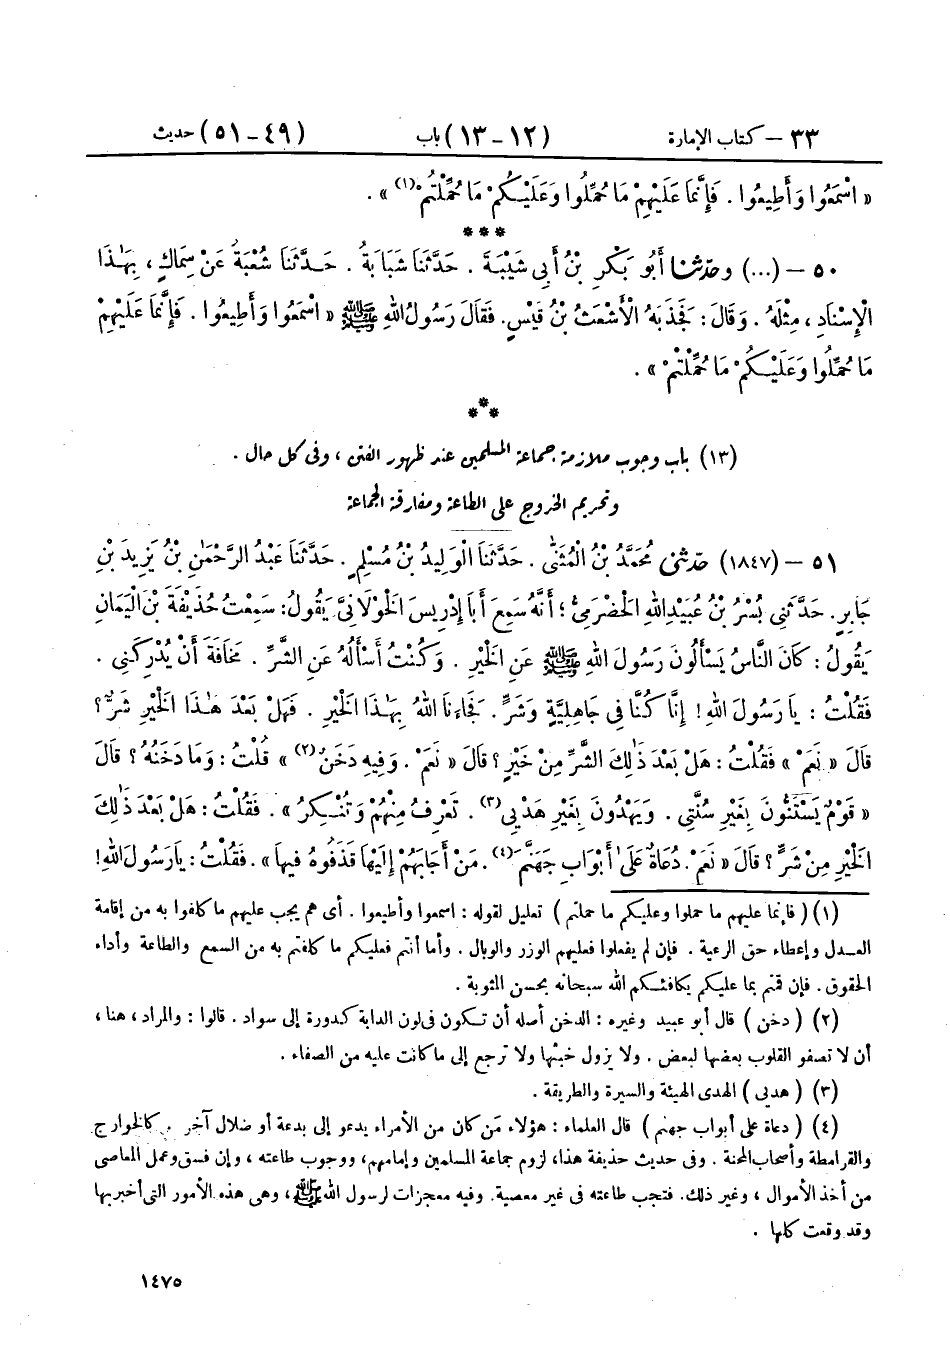 ٣٣ – كتاب الإمارة (١٢ – ١٣) باب (٤٩ – ٥١) حديث
« اسْمَعُوا وَأَطِيعُوا . فَإِنَّمَا عَلَيْهِمْ مَا حُمِّلُوا وَعَلَيْكُمْ مَا حُمِّلْتُمْ (١) » .
***
٥٠ – (...) وحَدَّثَنَا أَبُو بَكْرِ بْنُ أَبِي شَيْبَةَ . حَدَّثَنَا شَبَابَةُ . حَدَّثَنَا شُعْبَةُ عَنْ سِمَاكٍ ، بِهَٰذَا
الْإِسْنَادِ ، مِثْلَهُ . وَقَالَ : فَجَذَبَهُ الْأَشْعَثُ بْنُ قَيْسٍ. فَقَالَ رَسُولُ اللهِ ﷺ « اسْمَعُوا وَأَطِيعُوا . فَإِنَّمَا عَلَيْهِمْ
مَا حُمِّلُوا وَعَلَيْكُمْ مَا حُمِّلْتُمْ » .
***
(١٣) باب وجوب ملازمة جماعة المسلمين عند ظهور الفتن ، وفى كل حال .
وتحريم الخروج على الطاعة ومفارقة الجماعة
٥١ – (١٨٤٧) حَدَّثَنِي مُحَمَّدُ بْنُ الْمُثَنَّىٰ . حَدَّثَنَا الْوَلِيدُ بْنُ مُسْلِمٍ . حَدَّثَنَا عَبْدُ الرَّحْمَٰنِ بْنُ يَزِيدَ بْنِ
جَابِرٍ. حَدَّثَنِي بُسْرُ بْنُ عُبَيْدِ اللهِ الْحَضْرَمِيُّ ؛ أَنَّهُ سَمِعَ أَبَا إِدْرِيسَ الْخَوْلَانِيَّ يَقُولُ: سَمِعْتُ حُذَيْفَةَ بْنَ الْيَمَانِ
يَقُولُ : كَانَ النَّاسُ يَسْأَلُونَ رَسُولَ اللهِ ﷺ عَنِ الْخَيْرِ . وَكُنْتُ أَسْأَلُهُ عَنِ الشَّرِّ . مَخَافَةَ أَنْ يُدْرِكَنِي .
فَقُلْتُ : يَا رَسُولَ اللهِ! إِنَّا كُنَّا فِي جَاهِلِيَّةٍ وَشَرٍّ . فَجَاءَنَا اللهُ بِهَٰذَا الْخَيْرِ . فَهَلْ بَعْدَ هَٰذَا الْخَيْرِ شَرٌّ ؟
قَالَ « نَعَمْ » فَقُلْتُ : هَلْ بَعْدَ ذَٰلِكَ الشَّرِّ مِنْ خَيْرٍ ؟ قَالَ « نَعَمْ . وَفِيهِ دَخَنٌ (٢) » قُلْتُ : وَمَا دَخَنُهُ ؟ قَالَ
« قَوْمٌ يَسْتَنُّونَ بِغَيْرِ سُنَّتِي . وَيَهْدُونَ بِغَيْرِ هَدْيِي (٣) . تَعْرِفُ مِنْهُمْ وَتُنْكِرُ » . فَقُلْتُ : هَلْ بَعْدَ ذَٰلِكَ
الْخَيْرِ مِنْ شَرٍّ ؟ قَالَ « نَعَمْ. دُعَاةٌ عَلَىٰ أَبْوَابِ جَهَنَّمَ (٤) . مَنْ أَجَابَهُمْ إِلَيْهَا قَذَفُوهُ فِيهَا » . فَقُلْتُ : يَا رَسُولَ اللهِ!
(١) ( فإنما عليهم ما حملوا وعليكم ما حملتم ) تعليل لقوله : اسمعوا وأطيعوا . أى هم يجب عليهم ما كلفوا به من إقامة
العدل وإعطاء حق الرعية . فإن لم يفعلوا فعليهم الوزر والوبال . وأما أنتم فعليكم ما كلفتم به من السمع والطاعة وأداء
الحقوق . فإن قمتم بما عليكم يكافئكم الله سبحانه بحسن المثوبة .
(٢) ( دخن ) قال أبو عبيد وغيره : الدخن أصله أن تكون فى لون الدابة كدورة إلى سواد . قالوا : والمراد ، هنا ،
أن لا تصفو القلوب بعضها لبعض . ولا يزول خبثها ولا ترجع إلى ما كانت عليه من الصفاء .
(٣) ( هديى ) الهدى الهيئة والسيرة والطريقة .
(٤) ( دعاة على أبواب جهنم ) قال العلماء : هؤلاء مَن كان من الأمراء يدعو إلى بدعة أو ضلال آخر . كالخوارج
والقرامطة وأصحاب المحنة . وفى حديث حذيفة هذا، لزوم جماعة المسلمين وإمامهم، ووجوب طاعته ، وإن فسق وعمل المعاصى
من أخذ الأموال ، وغير ذلك. فتجب طاعته فى غير معصية. وفيه معجزات لرسول الله ﷺ ، وهى هذه الأمور التى أخبر بها
وقد وقعت كلها .
١٤٧٥